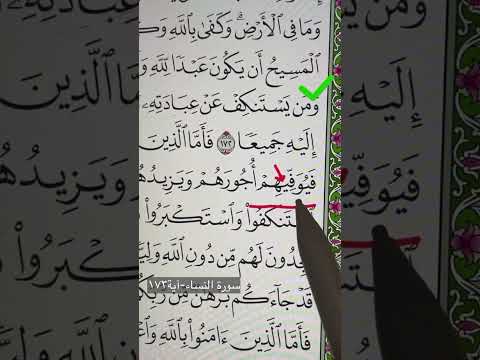 وَمَا فِي ٱلْأَرْضِ ۗ وَكَفَىٰ بِٱللَّهِ وَكِ
ٱلْمَسِيحُ أَن يَكُونَ عَبْدًا لِّلَّهِ وَ
وَمَن يَسْتَنكِفْ عَنْ عِبَادَتِهِۦ
إِلَيْهِ جَمِيعًا ١٧٢ فَأَمَّا ٱلَّذِينَ
فَيُوَفِّيهِمْ أُجُورَهُمْ وَيَزِيدُهُ
ٱسْتَنكَفُوا۟ وَٱسْتَكْبَرُوا۟
جِدُونَ لَهُم مِّن دُونِ ٱللَّهِ وَلِيًّ
سورة النساء-آية١٧٣
قَدْ جَآءَكُم بُرْهَٰنٌ مِّن رَّبِّكُ
فَأَمَّا ٱلَّذِينَ ءَامَنُوا۟ بِٱللَّهِ وَٱعْ